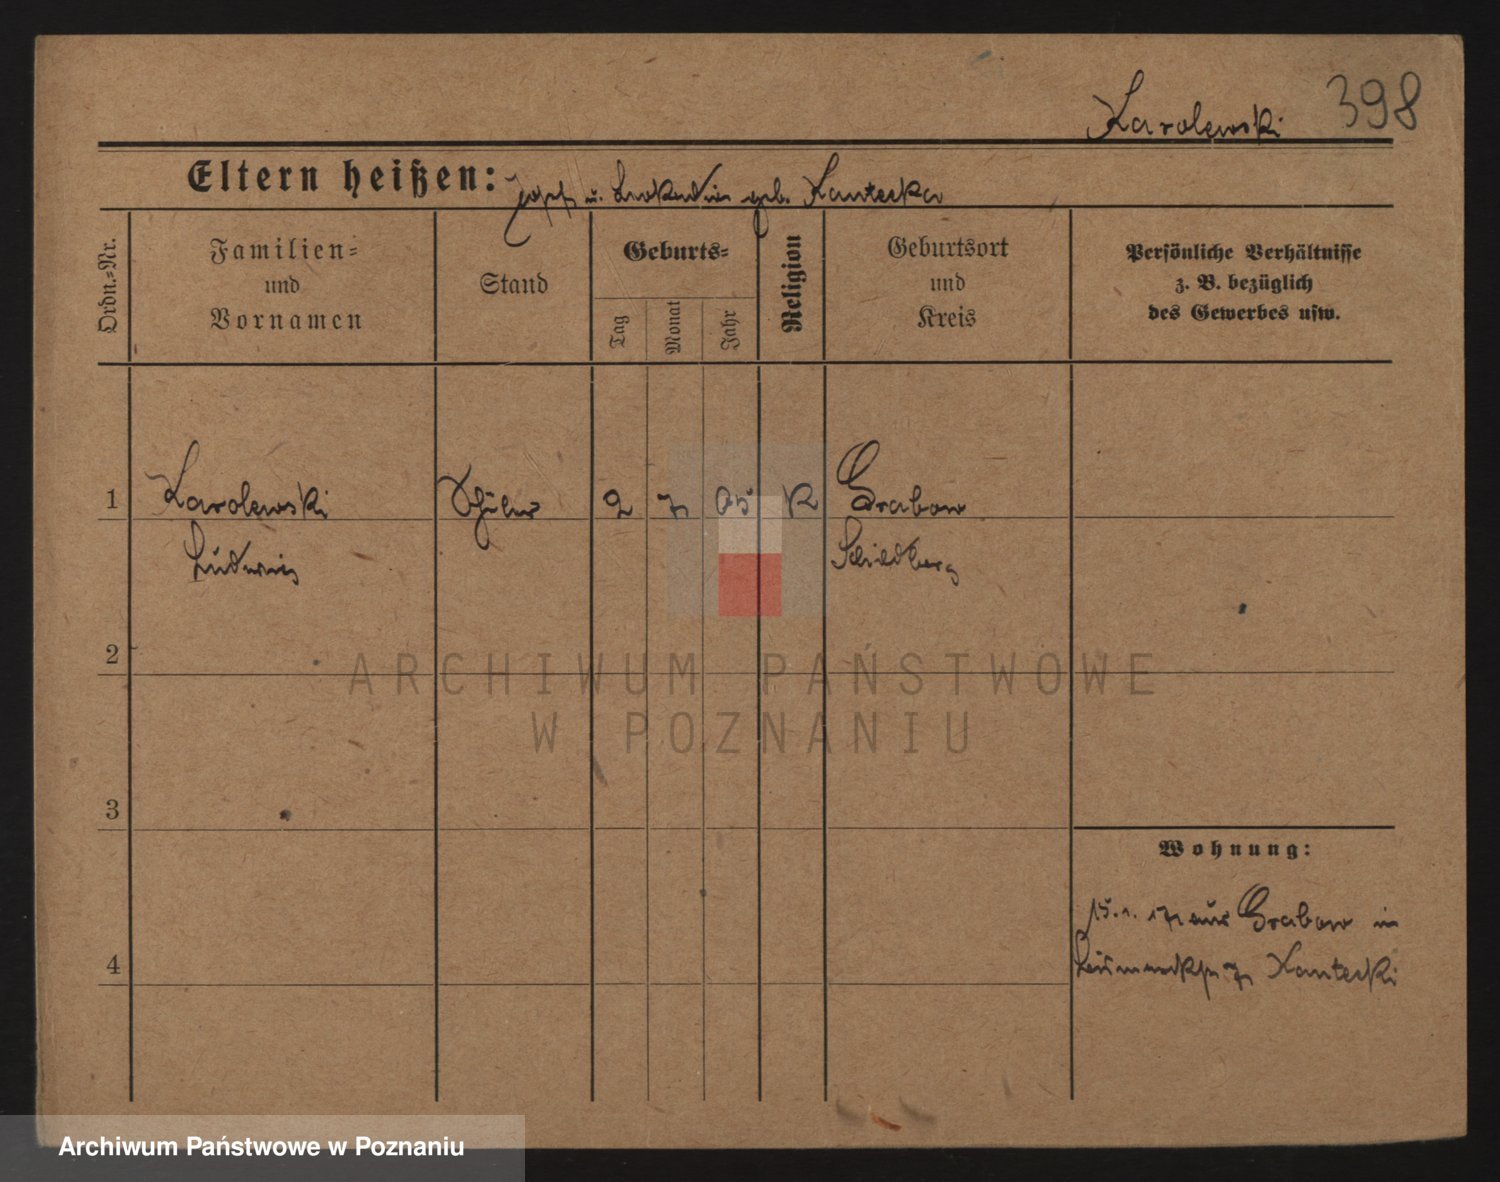 Karolewski 398
Eltern heißen: Josef u. Leokadia geb. Kantecka
Ordn.=Nr.
Familien=
und
Vornamen
Stand
Geburts=
Tag
Monat
Jahr
Religion
Geburtsort
und
Kreis
Persönliche Verhältnisse
z. B. bezüglich
des Gewerbes usw.
1 Karolewski Schüler 2 7 05 K Grabow
Ludwig Schildberg
2
ARCHIWUM PAŃSTWOWE
W POZNANIU
3
Wohnung:
15. 1. 17 aus Grabow in
4
7 Kantecki
Archiwum Państwowe w Poznaniu